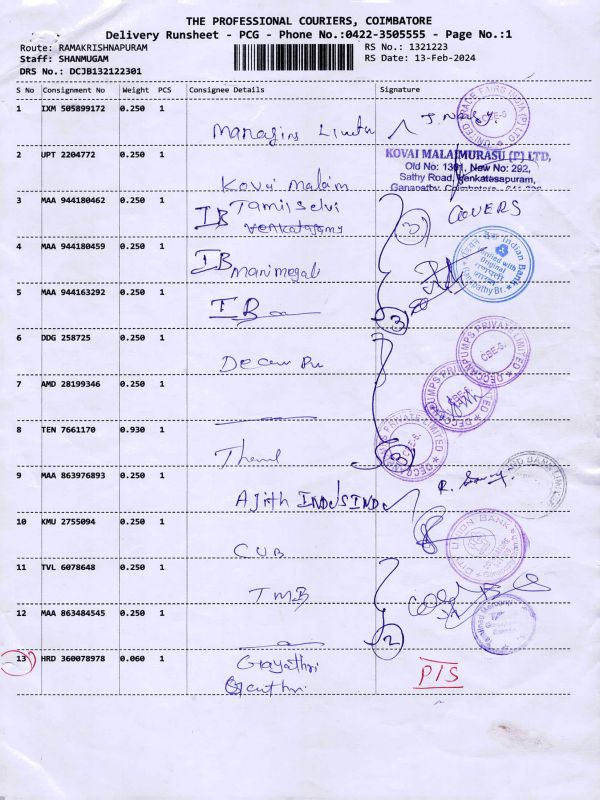 THE PROFESSIONAL COURIERS, COIMBATORE
Delivery Runsheet - PCG - Phone No.:0422-3505555 - Page No.:1
Route: RAMAKRISHNAPURAM
Staff: SHANMUGAM
DRS No.: DCJB132122301
RS No.: 1321223
RS Date: 13-Feb-2024
S No Consignment No Weight PCS Consignee Details Signature
1 IXM 505899172 0.250 1
2 UPT 2204772 0.250 1 Kovai Malaim
KOVAI MALAIMURASU (P) LTD,
Old No: 1301, New No: 292,
Sathy Road, Venkatasapuram,
Ganapathy, Coimbatore
3 MAA 944180462 0.250 1 IB Tamil Selvi
3 COVERS
4 MAA 944180459 0.250 1 IB Manimegali
Indian Bank
Verified with
Original
Ganapathy Br.
5 MAA 944163292 0.250 1 IB
3
6 DDG 258725 0.250 1
DECCANPUMPS PRIVATE LIMITED
CBE-6.
7 AMD 28199346 0.250 1
PUMPS PRIVATE LIMITED
CBE-6.
8 TEN 7661170 0.930 1
DECCANPUMPS PRIVATE LIMITED
CBE-6.
3
9 MAA 863976893 0.250 1 Ajith INDUSIND
10 KMU 2755094 0.250 1 CUB
CITY UNION BANK
11 TVL 6078648 0.250 1 TMB
12 MAA 863484545 0.250 1
2
13 HRD 360078978 0.060 1 Gayathri
P/S